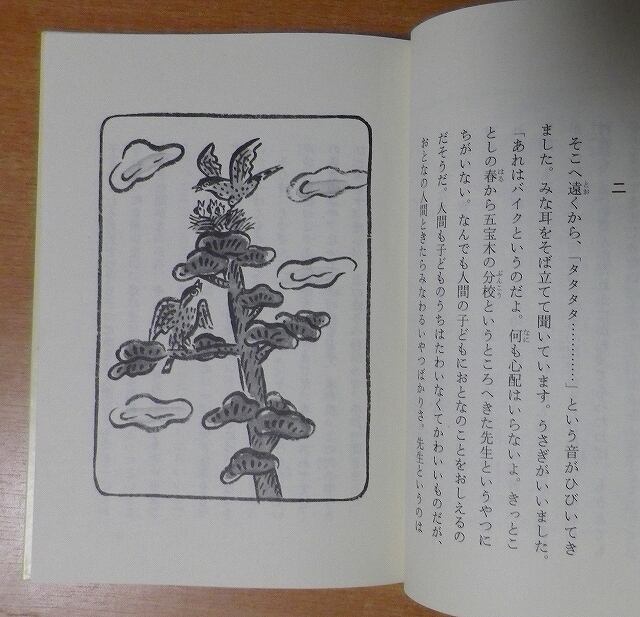 二
そこへ遠くから、「タタタタ…………」という音がひびいてき
ました。みな耳をそば立てて聞いています。うさぎがいいました。
「あれはバイクというのだよ。何も心配はいらないよ。きっとこ
としの春から五宝木の分校というところへきた先生というやつに
ちがいない。なんでも人間の子どもにおとなのことをおしえるの
だそうだ。人間も子どものうちはたわいなくてかわいいものだが、
おとなの人間ときたらみなわるいやつばかりさ。先生というのは